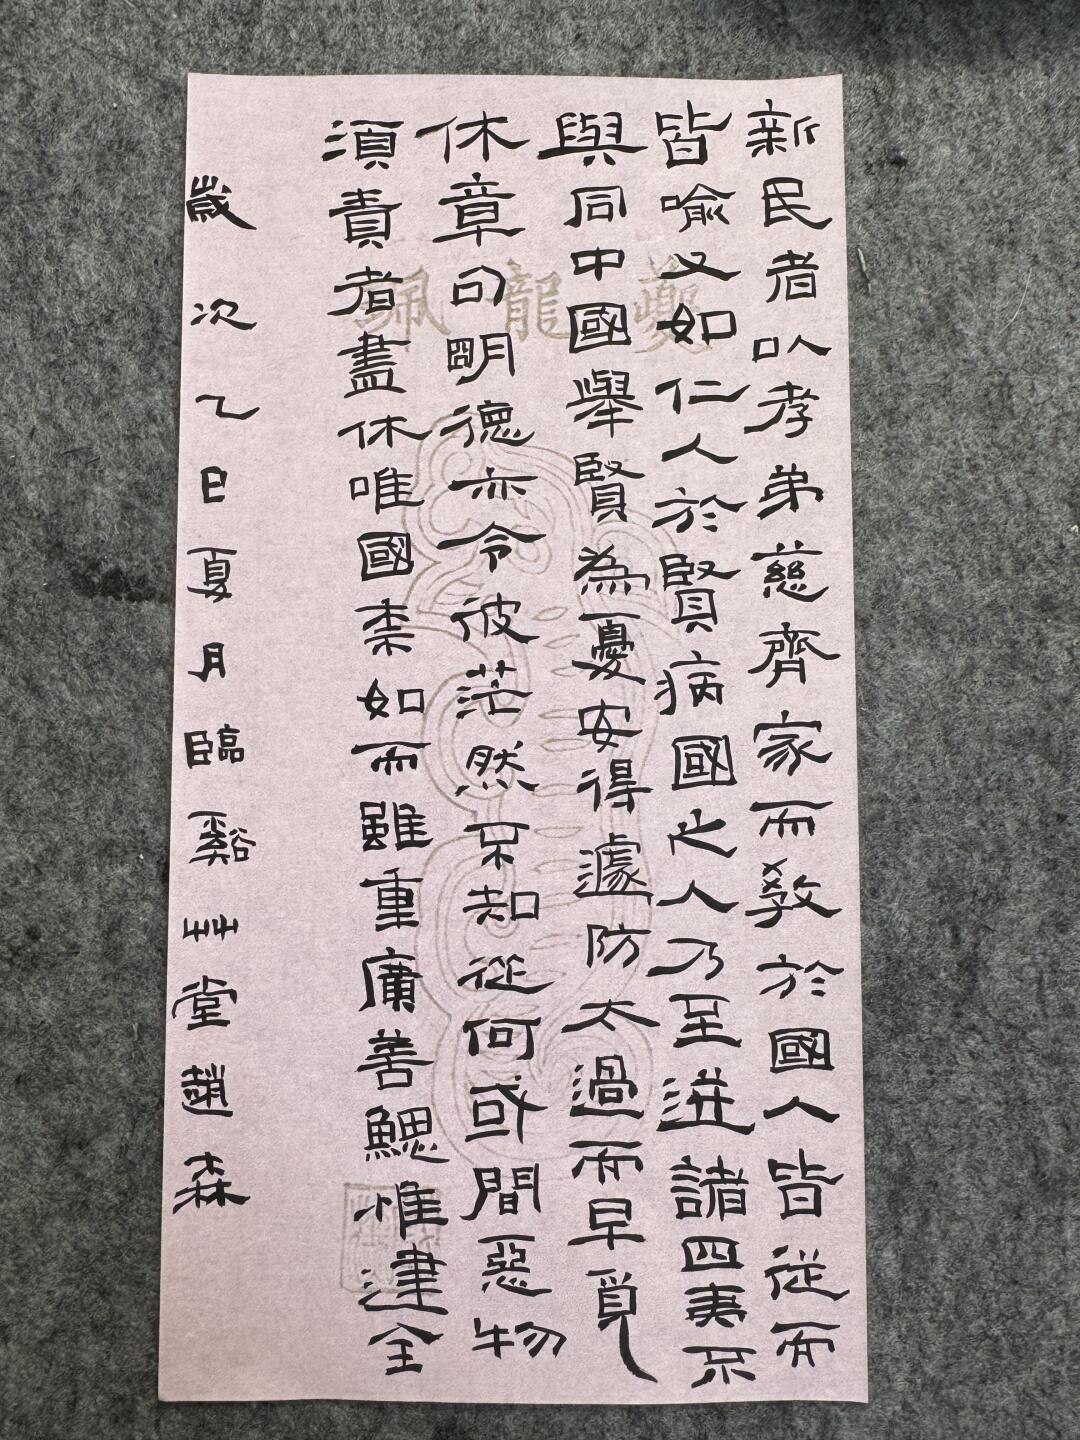 新民者以孝弟慈齊家而教於國人皆從而
皆喻又如仁人於賢病國之人乃至迸諸四夷不
與同中國舉賢為憂安得遽防太過而早覓
休章句明德亦令彼茫然不知從何或間惡物
須責者盡休唯國柰如而雖重庸善鰓惟建全
歲次乙巳夏月臨谿艸堂趙森
夔龍珮